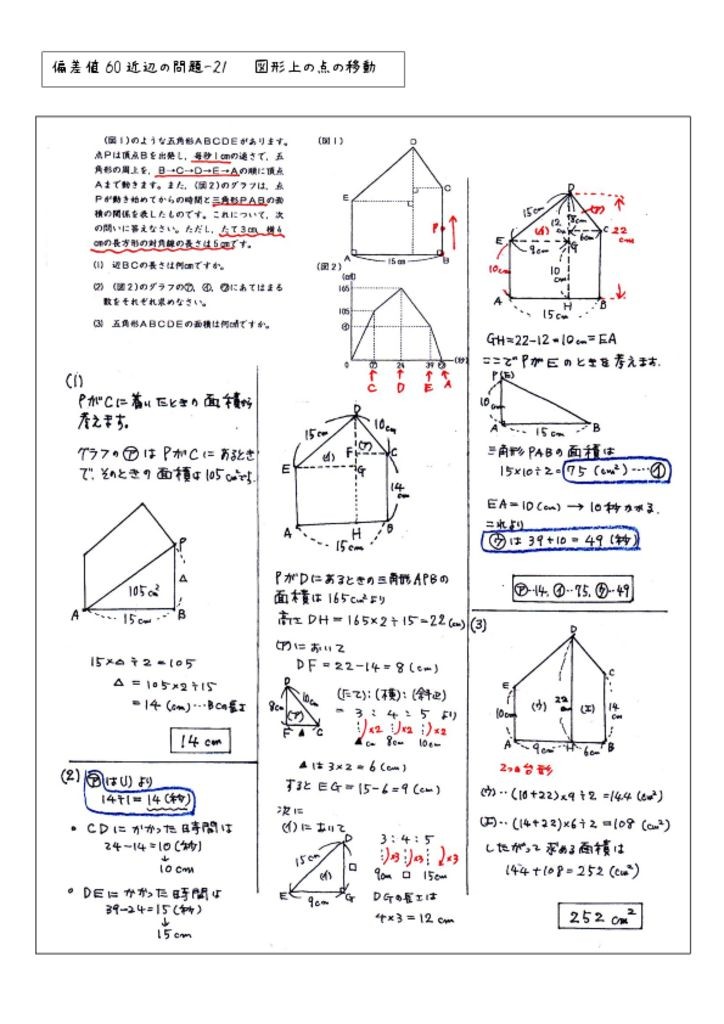 偏差値60近辺の問題-21 図形上の点の移動
(図1)のような五角形ABCDEがあります。
点Pは頂点Bを出発し、毎秒1cmの速さで、五
角形の周上を、B→C→D→E→Aの順に頂点
Aまで動きます。また、(図2)のグラフは、点
Pが動き始めてからの時間と三角形PABの面
積の関係を表したものです。これについて、次
の問いに答えなさい。ただし、たて3cm、横4
cmの長方形の対角線の長さは5cmです。
(1) 辺BCの長さは何cmですか。
(2) (図2)のグラフの㋐、㋑、㋒にあてはまる
数をそれぞれ求めなさい。
(3) 五角形ABCDEの面積は何cm²ですか。
(図1)
D
C
E
P
A
B
15cm
(図2)
(cm²)
165
105
㋑
0
㋐
24
39
㋒
(秒)
C
D
E
A
(1)
PがCに着いたときの面積から
考えます。
グラフの㋐はPがCにあるとき
で、そのときの面積は105cm²です。
P
105cm²
△
A
15cm
B
15×△÷2=105
△=105×2÷15
=14(cm)…BCの長さ
14cm
(2) ㋐は(1)より
14÷1=14(秒)
・CDにかかった時間は
24-14=10(秒)
↓
10cm
・DEにかかった時間は
39-24=15(秒)
↓
15cm
D
15cm
10cm
(ア)
F
C
E
(イ)
G
14cm
A
H
B
15cm
PがDにあるときの三角形APBの
面積は165cm²より
高さDH=165×2÷15=22(cm)
(ア)において
DF=22-14=8(cm)
D
8cm
10cm
(ア)
F
▲
C
(たて):(横):(斜辺)
=3:4:5より
×2
×2
×2
▲cm 8cm 10cm
▲は3×2=6(cm)
するとEG=15-6=9(cm)
次に
(イ)において
D
15cm
(イ)
□
E
G
9cm
3:4:5
×3
×3
×3
9cm □ 15cm
DGの長さは
4×3=12cm
D
15cm
(ア)
12cm
8cm
C
E
(イ)
6cm
9cm
G
22cm
10cm
10cm
A
H
B
15cm
GH=22-12=10cm=EA
ここでPがEのときを考えます。
P(E)
10cm
A
15cm
B
三角形PABの面積は
15×10÷2=75(cm²)…㋑
EA=10(cm)→10秒かかる。
これより
㋒は39+10=49(秒)
㋐…14, ㋑…75, ㋒…49
(3)
D
E
C
22cm
10cm
(ウ)
(エ)
14cm
A
9cm
H
6cm
B
2つの台形
(ウ)…(10+22)×9÷2=144(cm²)
(エ)…(14+22)×6÷2=108(cm²)
したがって求める面積は
144+108=252(cm²)
252cm²